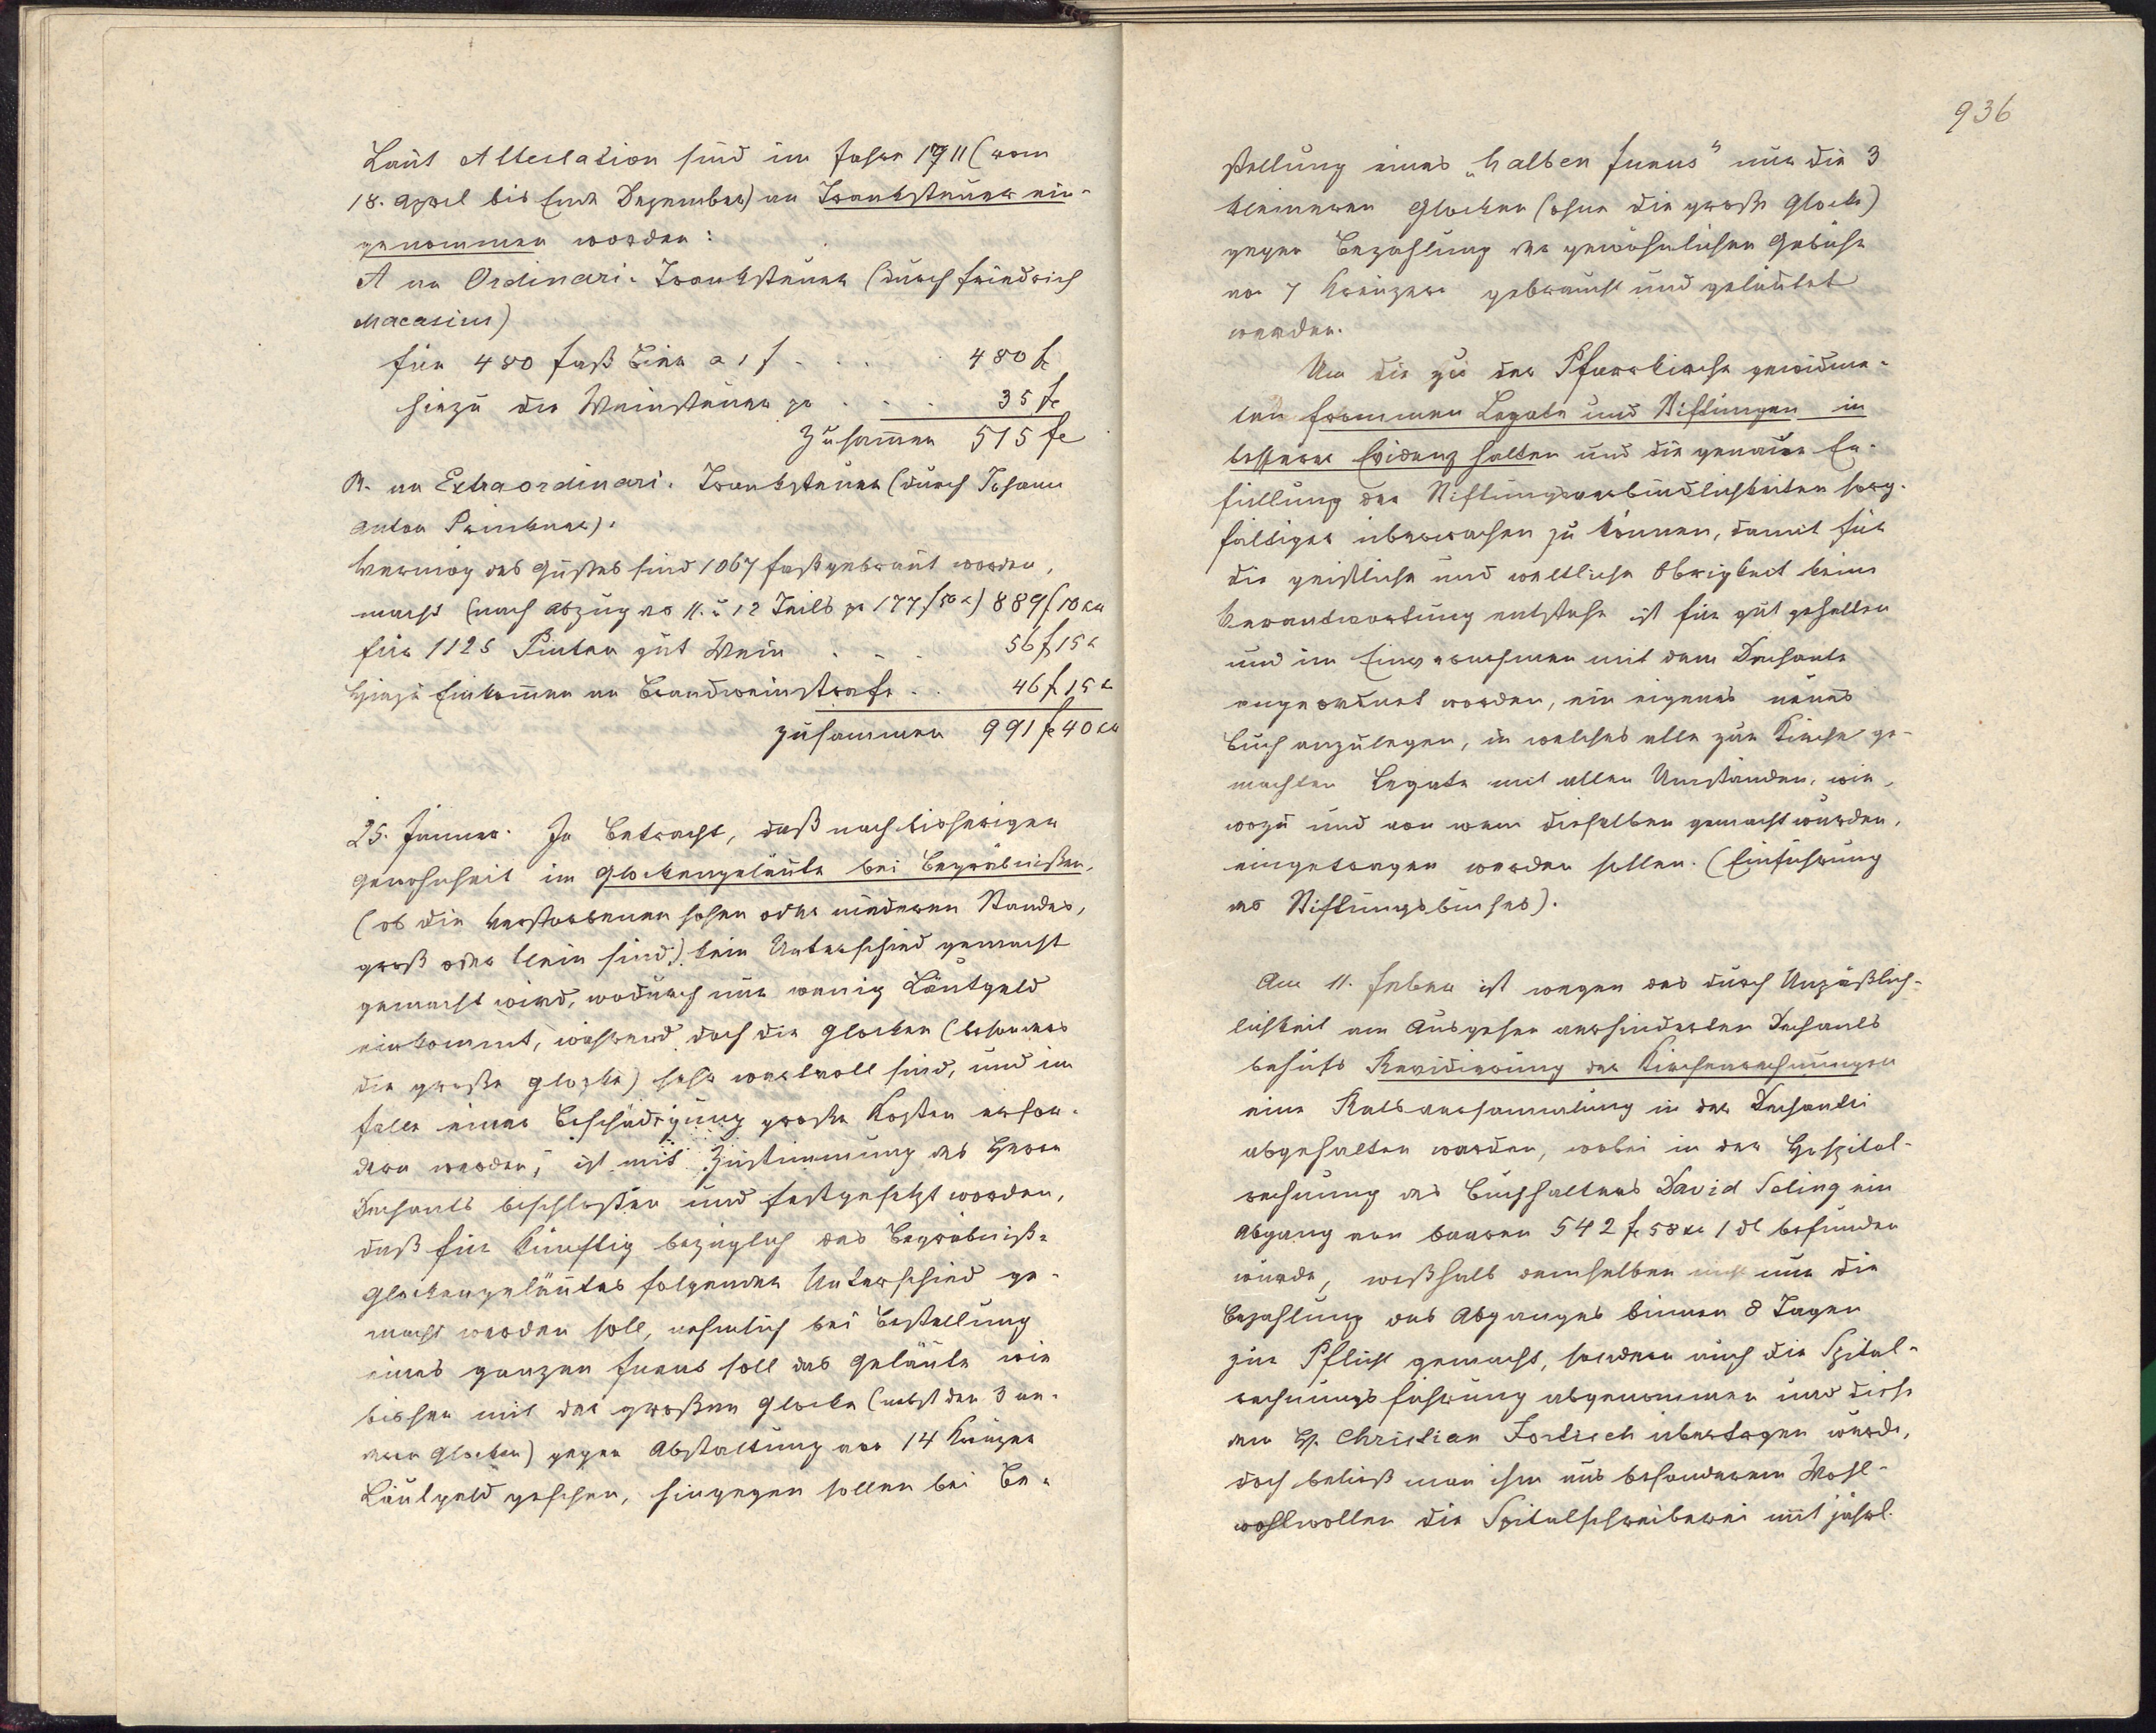 Laut Attestation sind im Jahre 1711 (vom
18. April bis Ende Dezember) an Tranksteuer ein-
genommen worden:
A an Ordinari-Tranksteuer (durch Friedrich
Macasius)
für 480 Faß Bier a 1 f . . . 480 f
hiezu die Weinsteuer pr . . . 35 f
Zusam̄en 515 f
B. an Extraordinari-Tranksteuer (durch Johann
Anton).
Vermög des Gußes sind 1067 Faß gebraut worden,
macht (nach Abzug des 11. u 12 Teils pr 177 f 50 x) 889 f 10 xr
für 1125 Pinten gut Wein . . . 56 f 15 x
Hiezu Einkom̄en an Brandweinstrafe . . 46 f 15 x
zusammen 991 f 40 xr
25. Jänner. In Betracht, daß nach bisherigen
Gewohnheit im Glockengeläute bei Begräbnißen,
(ob die Verstorbenen hohen oder niederen Standes,
groß oder klein sind) kein Unterschied gemacht
gemacht wird, wodurch nur wenig Läutgeld
einkommt, während doch die Glocken (besonders
die große Glocke) sehr wertvoll sind, und im
Falle einer Beschädigung große Kosten erfor-
dern werden, ist mit Zustimmung des Herrn
Dechants beschloßen und festgesetzt worden,
daß für künftig bezüglich des Begräbniß-
Glockengeläutes folgender Unterschied ge-
macht werden soll, nehmlich bei Bestellung
eines ganzen Funus soll das Geläute wie
bisher mit der großen Glocke (nebst den 3 an-
dern Glocken) gegen Abstattung von 14 Kreuzer
Läutgeld geschehen, hingegen sollen bei Be-
936
stellung eines „halben Funus" nur die 3
kleineren Glocken (ohne die große Glocke)
gegen Bezahlung der gewöhnlichen Gebühr
von 7 Kreuzern gebraucht und geläutet
werden.
Um die zu der Pfarrkirche gewidme-
ten frommen Legate und Stiftungen in
besserer Evidenz halten und die genaue Er-
füllung der Stiftungsverbindlichkeiten sorg-
fältiger überwachen zu können, damit für
die geistliche und weltliche Obrigkeit keine
Verantwortung entstehe ist für gut gehalten
und im Einvernehmen mit dem Dechante
angeordnet worden, ein eigenes neues
Buch anzulegen, in welches alle zur Kirche ge-
machten Legate mit allen Umständen, wie,
wozu und von wem dieselben gemacht wurden,
eingetragen werden sollen. (Einführung
des Stiftungsbuches).
Am 11. Feber ist wegen des durch Unpäßlich-
lichkeit am Ausgehen verhinderten Dechants
behufs Revidierung der Kirchenrechnungen
eine Ratsversammlung in der Dechantei
abgehalten worden, wobei in der Hospital-
rechnung des Buchhalters David Seling ein
Abgang von baaren 542 f 58 xr 1 dl befunden
wurde, weßhalb demselben nicht nur die
Bezahlung des Abganges binnen 8 Tagen
zur Pflicht gemacht, sondern auch die Spital-
rechnungsführung abgenommen und diese
dem H. Christian übertragen wurde,
doch beließ man ihm aus besonderem Wohl-
wohlwollen die Spitalschreiberei mit jährl.